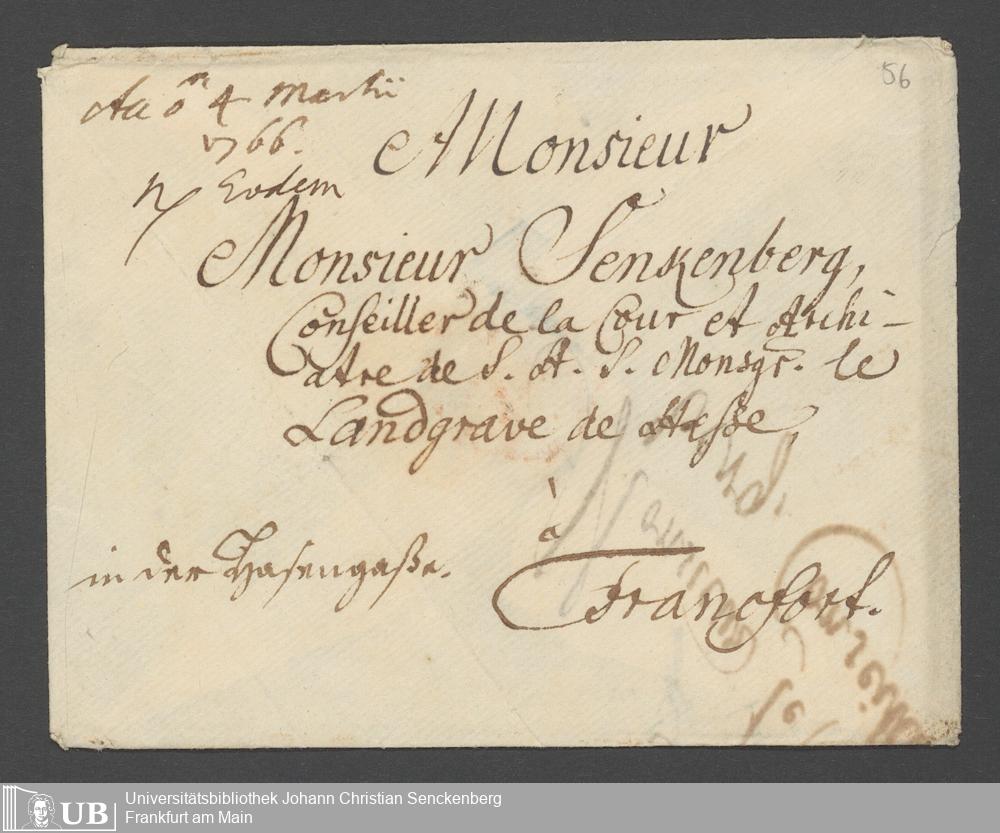 Acc. 4 Martii
1766.
Eodem
56
Monsieur
Monsieur Senkenberg,
Conseiller de la Cour et Archi-
atre de S. A. S. Monsgr. le
Landgrave de Hesse,
à
Francfort.
in der Hasengaße.
UB
Universitätsbibliothek Johann Christian Senckenberg
Frankfurt am Main